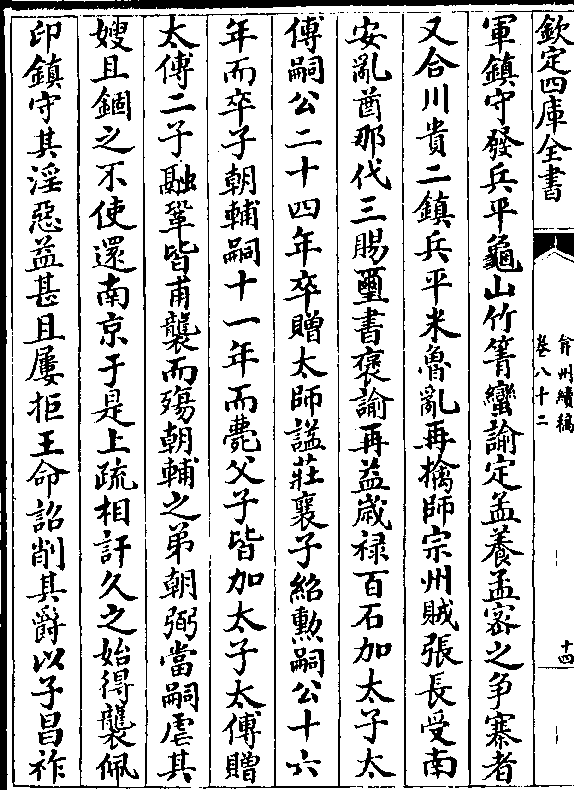 欽定四庫全書
弇州續稿
卷八十二
十四
軍鎮守發兵平龜山竹箐蠻諭定孟養孟密之爭寨者
又合川貴二鎮兵平米魯亂再擒師宗州賊張長受南
安亂酋那代三賜璽書褒諭再益歲禄百石加太子太
傅嗣公二十四年卒贈太師諡莊襄子紹勲嗣公十六
年而卒子朝輔嗣十一年而薨父子皆加太子太傅贈
太傅二子融鞏皆甫襲而殤朝輔之弟朝弼當嗣虐其
嫂且錮之不使還南京于是上疏相訐久之始得襲佩
印鎮守其淫惡益甚且屢拒王命詔削其爵以子昌祚